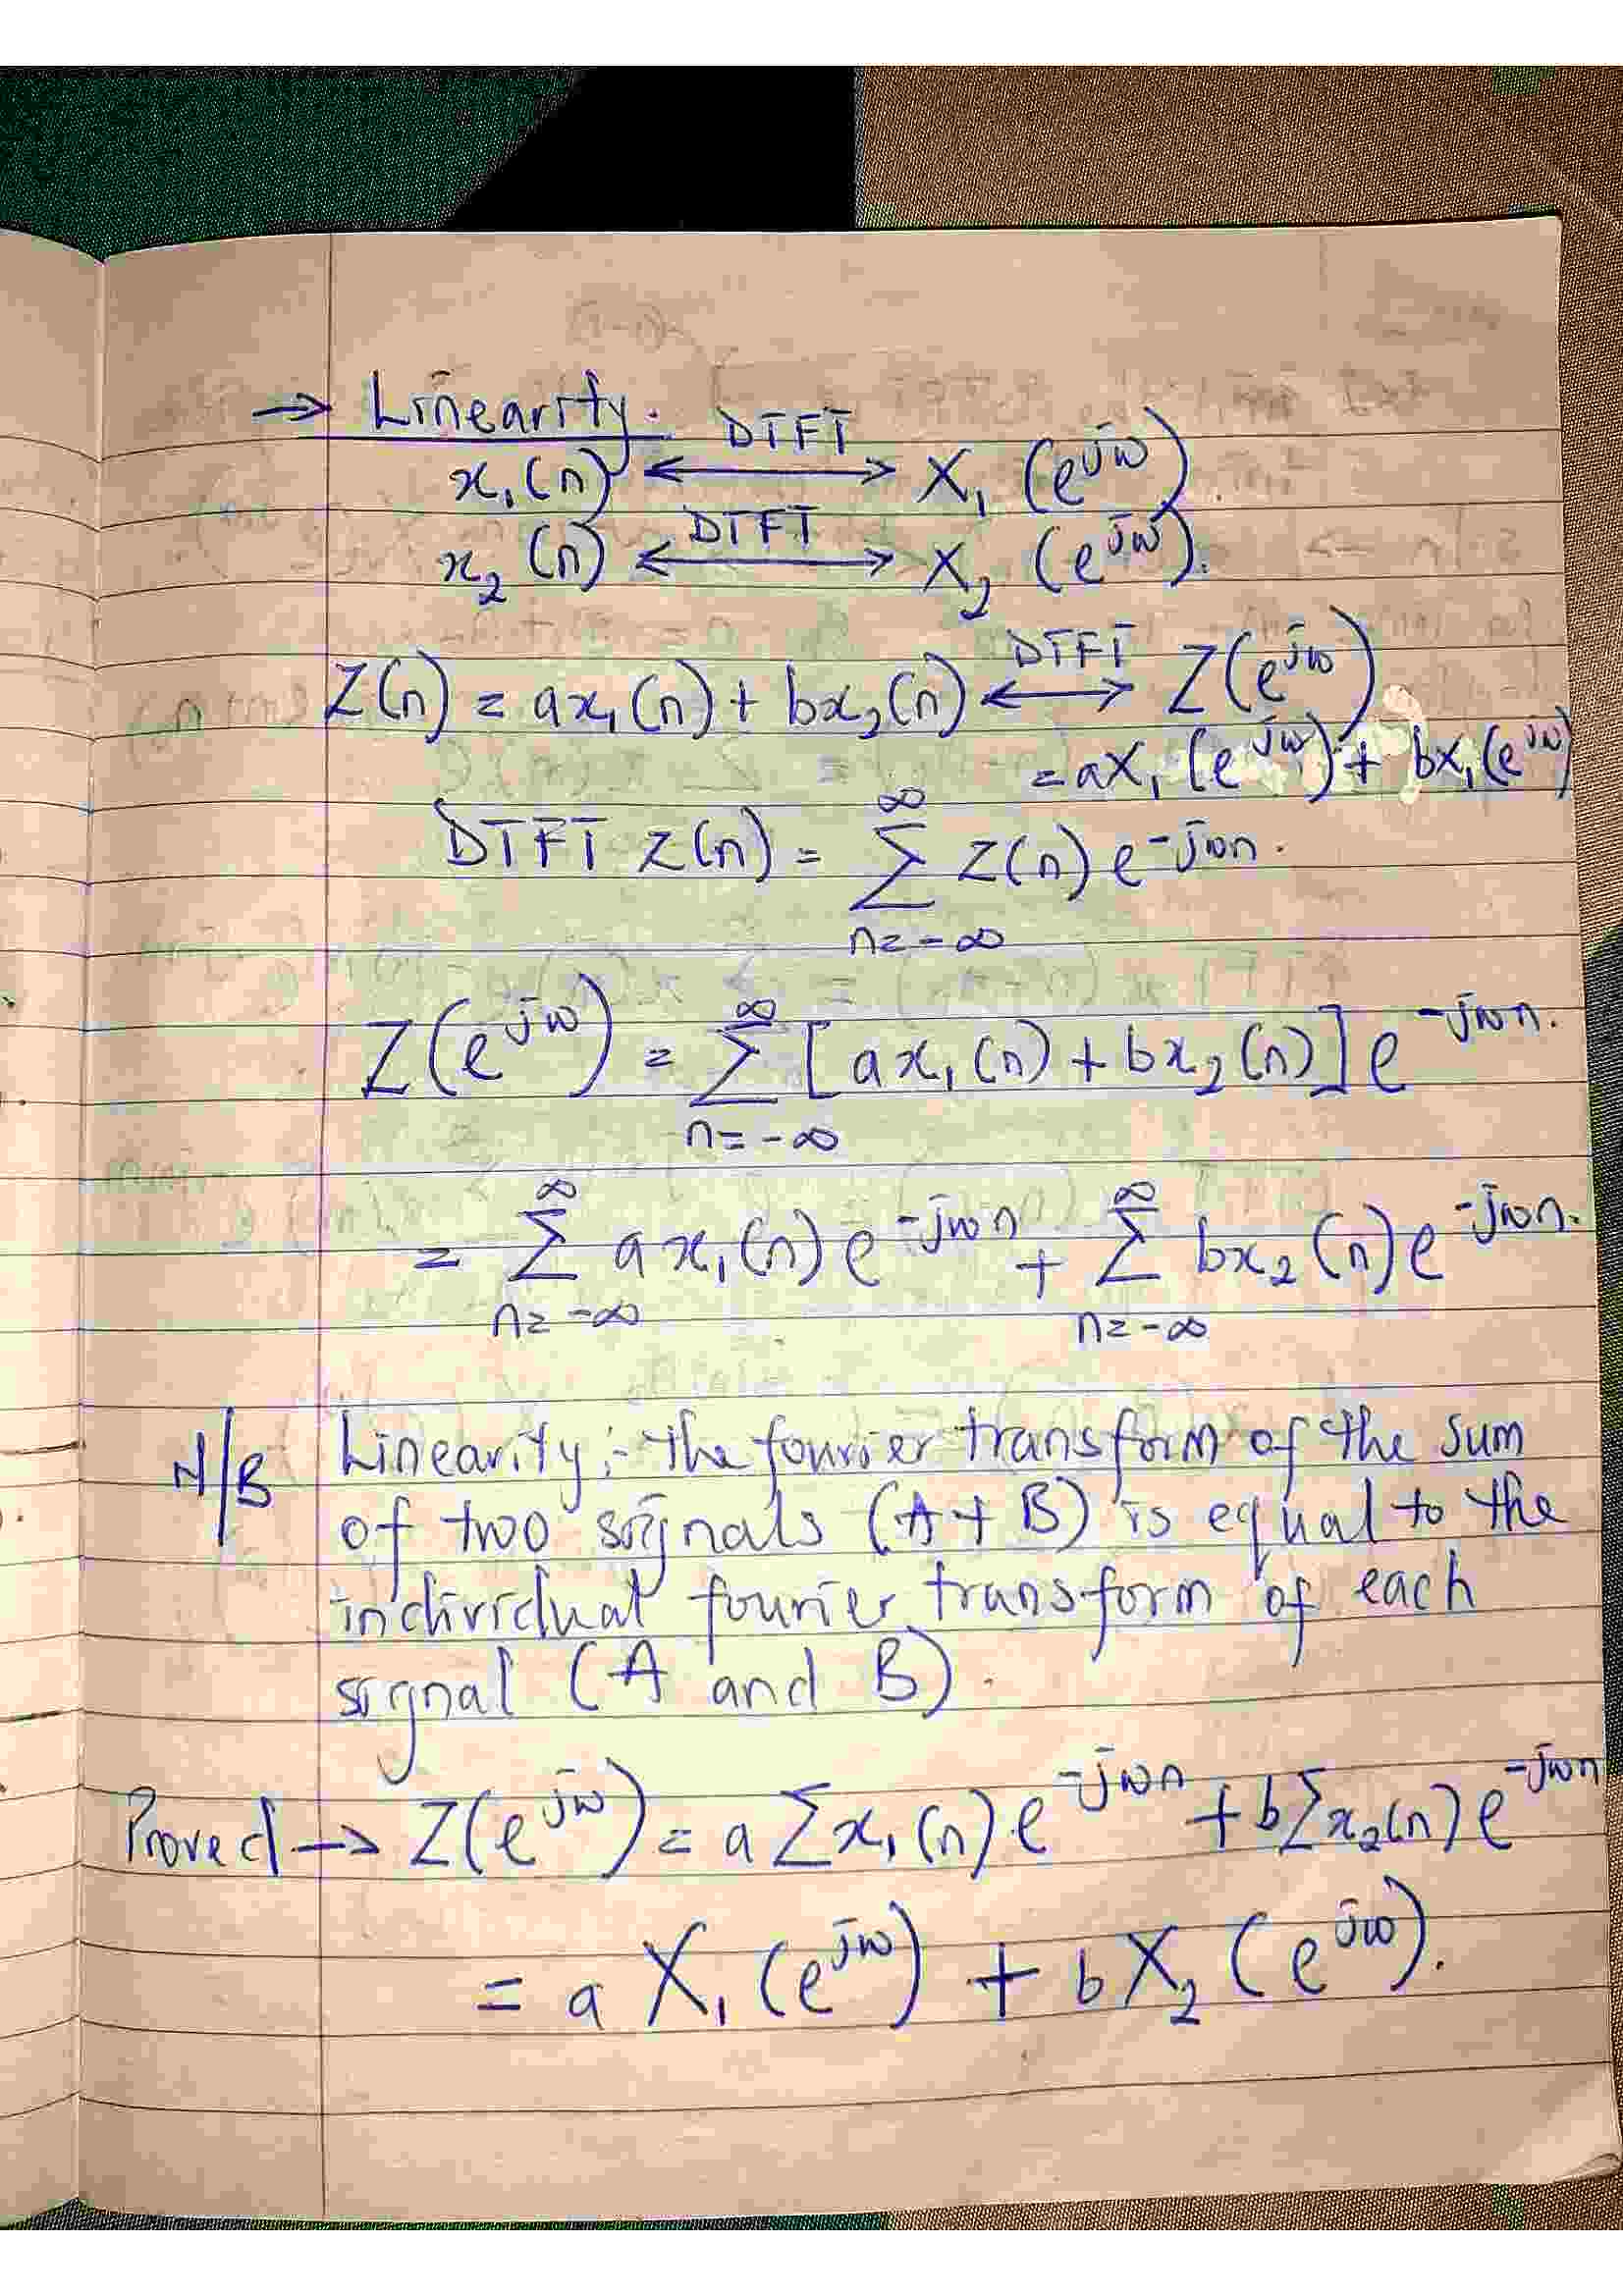 → Linearity.
x₁(n) ←DTFT→ X₁(e^{jω})
x₂(n) ←DTFT→ X₂(e^{jω}).
Z(n) = ax₁(n) + bx₂(n) ←DTFT→ Z(e^{jω})
= aX₁(e^{jω}) + bX₁(e^{jω})
DTFT z(n) = ∑_{n=-∞}^{∞} Z(n) e^{-jωn}.
Z(e^{jω}) = ∑_{n=-∞}^{∞} [ax₁(n) + bx₂(n)] e^{-jωn}.
= ∑_{n=-∞}^{∞} ax₁(n) e^{-jωn} + ∑_{n=-∞}^{∞} bx₂(n) e^{-jωn}.
N/B Linearity:- The fourier transform of the sum
of two signals (A + B) is equal to the
individual fourier transform of each
signal (A and B).
Proved → Z(e^{jω}) = a∑x₁(n).e^{-jωn} + b∑x₂(n) e^{-jωn}
= a X₁(e^{jω}) + b X₂(e^{jω}).